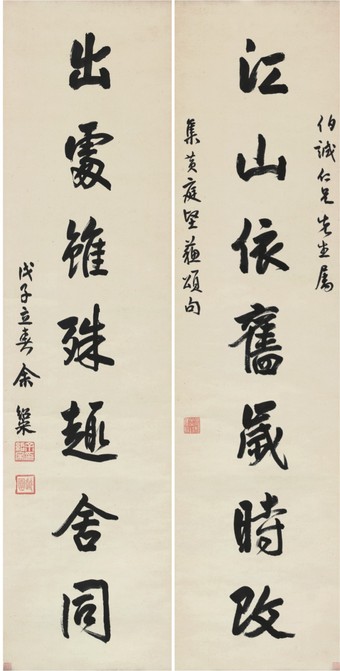 伯誠仁兄先生屬
江山依舊歲時改
集黄庭堅蘇頌句
出處雖殊趣舍同
戊子立春余紹宋